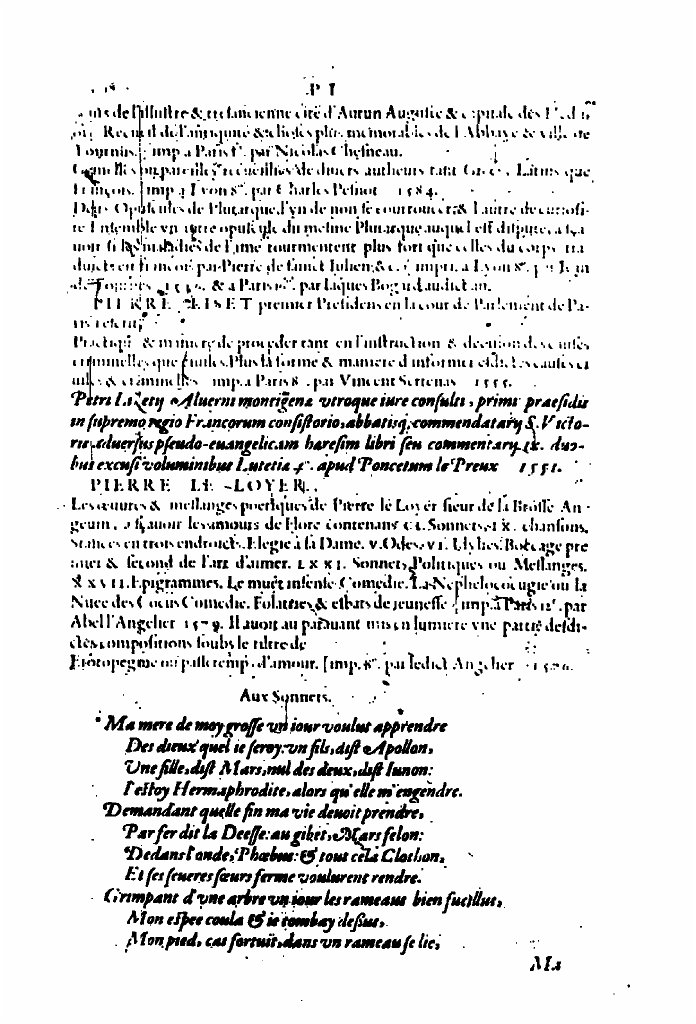 P I
de l'illustre & tresancienne cité d'Autun Auguste & capitale des
Recueil de l'antiquité & choses plus memorables de l'Abbaye & ville de
Tournus. imp. a Paris fº. par Nicolas Chesneau.
Gemelles ou pareilles, recueillies de divers autheurs tant Grecs, Latins que
François. imp. a Lyon 8º. par Charles Pesnot 1584.
Deux Opuscules de Plutarque, l'vn de non se courroucer, & l'autre de curiosi-
té. Ensemble vn autre opuscule du mesme Plutarque auquel est disputé, a sça-
uoir si les maladies de l'ame tourmentent plus fort que celles du corps, tra
duicts en françois par Pierre de sainct Iulien, &c. impr. a Lyon 8º. par Iean
de Tournes & a Paris par Iaques Bogard audict an.
PIERRE LISET premier President en la cour de Parlement de Pa-
ris a escrit,
Practique & maniere de proceder tant en l'instruction & decision des causes
criminelles que ciuiles. Plus la forme & maniere d'informer esdictes causes ci
uiles & criminelles imp. a Paris 8º. par Vincent Sertenas 1555.
Petri Lizetij Aluerni montigena vtroque iure consulti, primi praesidis
in supremo regio Francorum consistorio, abbatisq; commendatarij S. Victo-
ris, aduersus pseudo-euangelicam haresim libri seu commentarij IX. duo-
bus excusi voluminibus Lutetia 4º. apud Poncetum le Preux 1551.
PIERRE LE-LOYER.
Les œuures & meslanges poetiques de Pierre le Loyer sieur de la Brosse An-
geuin, a sçauoir les amours de Flore contenans CI. Sonnets, IX. chansons,
Stances en trois endroicts. Elegie à sa Dame. V. Odes, VI. Idylles. Bocage pre
mier & second de l'art d'aimer. LXXI. Sonnets Politiques ou Meslanges.
LXXVII. Epigrammes. Le muet insensé Comedie. La Nephelococugie ou la
Nuee des Cocus Comedie. Folastries & esbats de ieunesse imp. à Paris 12º. par
Abel l'Angelier 1579. Il auoit au parauant mis en lumiere vne partie desdi-
ctes compositions soubs le tiltre de
Erotopegnie ou passetemps d'amour. [imp. 8º. par ledict Angelier
Aux Sonnets.
Ma mere de moy grosse vn iour voulut apprendre
Des dieux quel ie seroy: vn fils, dist Apollon,
Vne fille, dist Mars, nul des deux, dist Iunon:
I'estoy Hermaphrodite, alors qu'elle m'engendre.
Demandant quelle fin ma vie deuoit prendre,
Par fer dit la Deesse: au gibet, Mars felon:
Dedans l'onde, Phœbus: & tout cela Clothon,
Et ses seueres sœurs ferme voulurent rendre.
Grimpant d'vne arbre vn iour les rameaus bien fueillus,
Mon espee coula & ie tombay dessus,
Mon pied, cas fortuit, dans vn rameau se lie,
Ma